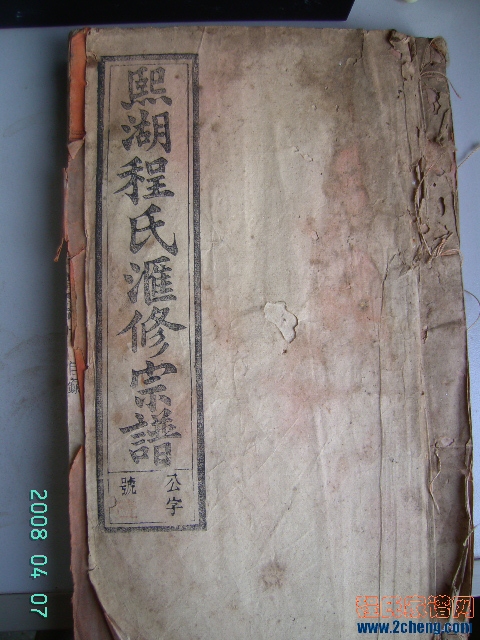 熙湖程氏滙修宗譜
公字
號
目錄
2008 04 07
程氏家谱网
www.2cheng.com